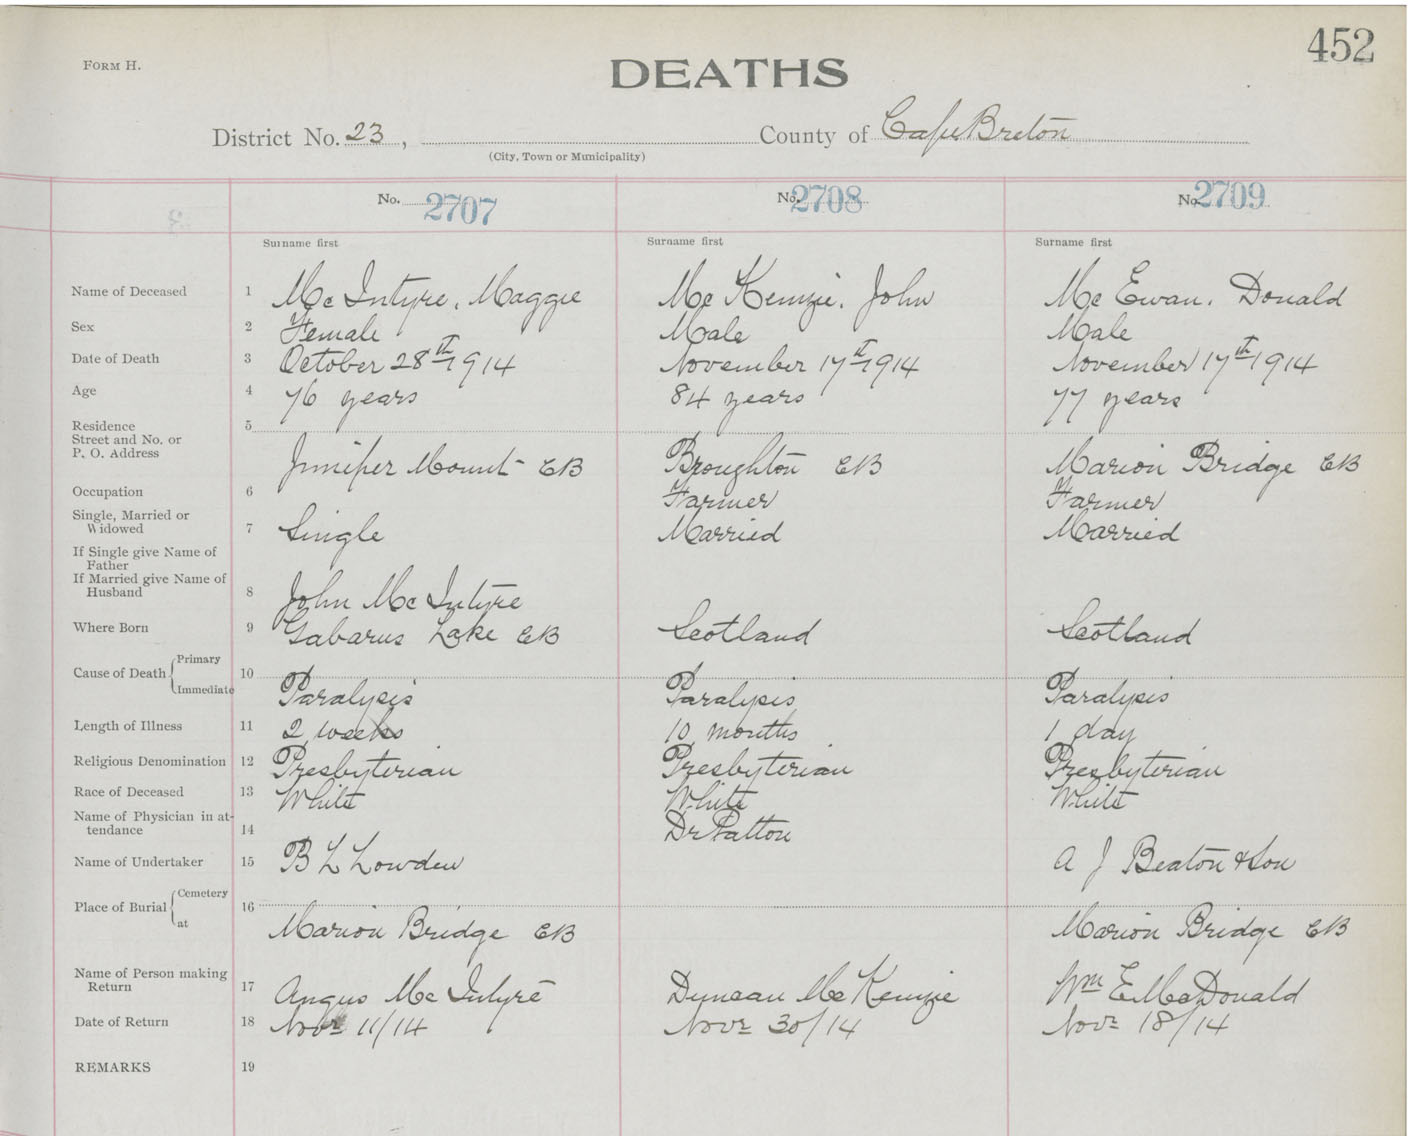 452
FORM H.
DEATHS
District No. 23, County of Cape Breton
(City, Town or Municipality)
No. 2707 No. 2708 No. 2709
Surname first Surname first Surname first
Name of Deceased 1 Mc Intyre, Maggie Mc Kenzie, John Mc Ewan, Donald
Sex 2 Female Male Male
Date of Death 3 October 28th 1914 November 17th 1914 November 17th 1914
Age 4 76 years 84 years 77 years
Residence 5
Street and No. or
P. O. Address Juniper Mount CB Broughton CB Marion Bridge CB
Occupation 6 Farmer Farmer
Single, Married or
Widowed 7 Single Married Married
If Single give Name of
Father
If Married give Name of
Husband 8 John Mc Intyre
Where Born 9 Gabarus Lake CB Scotland Scotland
Cause of Death Primary 10
Immediate Paralysis Paralysis Paralysis
Length of Illness 11 2 weeks 10 months 1 day
Religious Denomination 12 Presbyterian Presbyterian Presbyterian
Race of Deceased 13 White White White
Name of Physician in at-
tendance 14 Dr Patton
Name of Undertaker 15 B L Lowden A J Beaton & Son
Place of Burial Cemetery 16
at Marion Bridge CB Marion Bridge CB
Name of Person making
Return 17 Angus Mc Intyre Duncan Mc Kenzie Wm E. McDonald
Date of Return 18 Novr 11/14 Novr 30/14 Novr 18/14
REMARKS 19